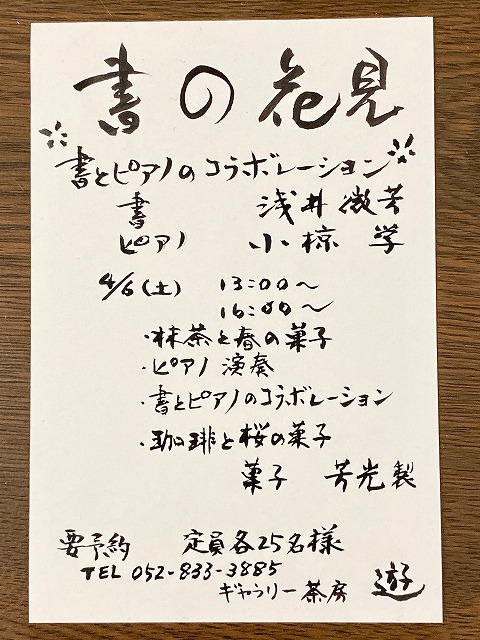 書の花見
書とピアノのコラボレーション
書 浅井微芳
ピアノ 小椋 学
4/6(土) 13:00〜
16:00〜
・抹茶と春の菓子
・ピアノ演奏
・書とピアノのコラボレーション
・珈琲と桜の菓子
菓子 芳光製
要予約 定員各25名様
TEL 052-833-3885
ギャラリー茶房 遊